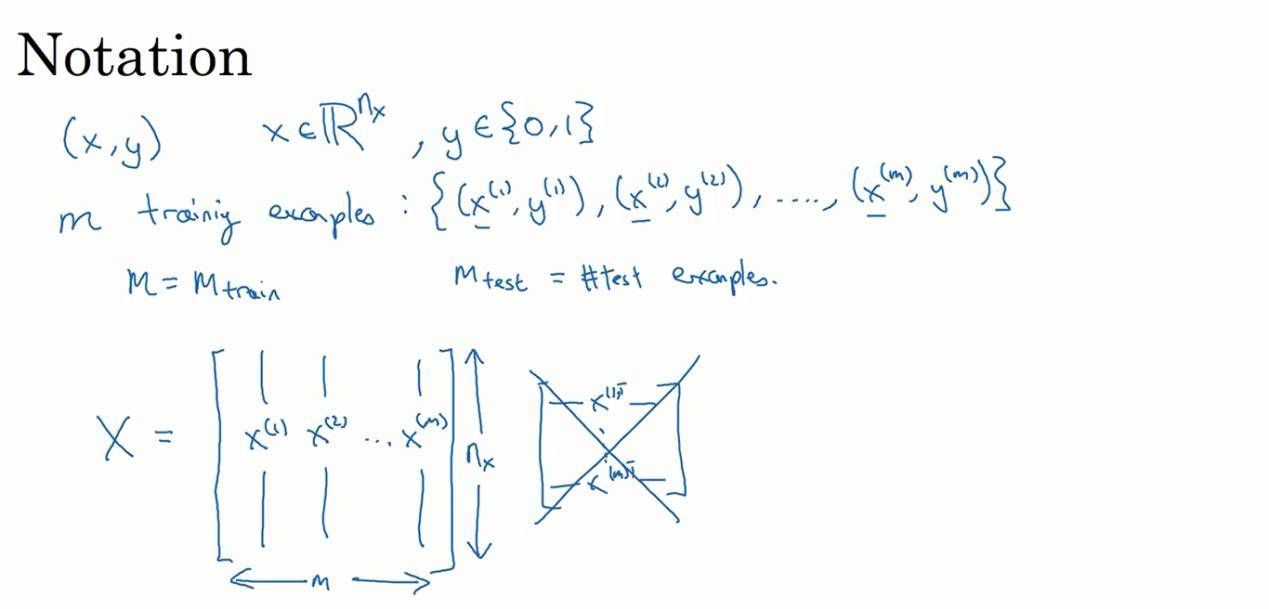 Notation
(x,y) x∈ℝ^{n_x}, y∈{0,1}
m training examples: {(x^{(1)}, y^{(1)}), (x^{(2)}, y^{(2)}), ...., (x^{(m)}, y^{(m)})}
M = M_{train} M_{test} = #test examples.
X = [ x^{(1)} x^{(2)} ... x^{(m)} ] n_x
x^{(1)T}
x^{(m)T}
m